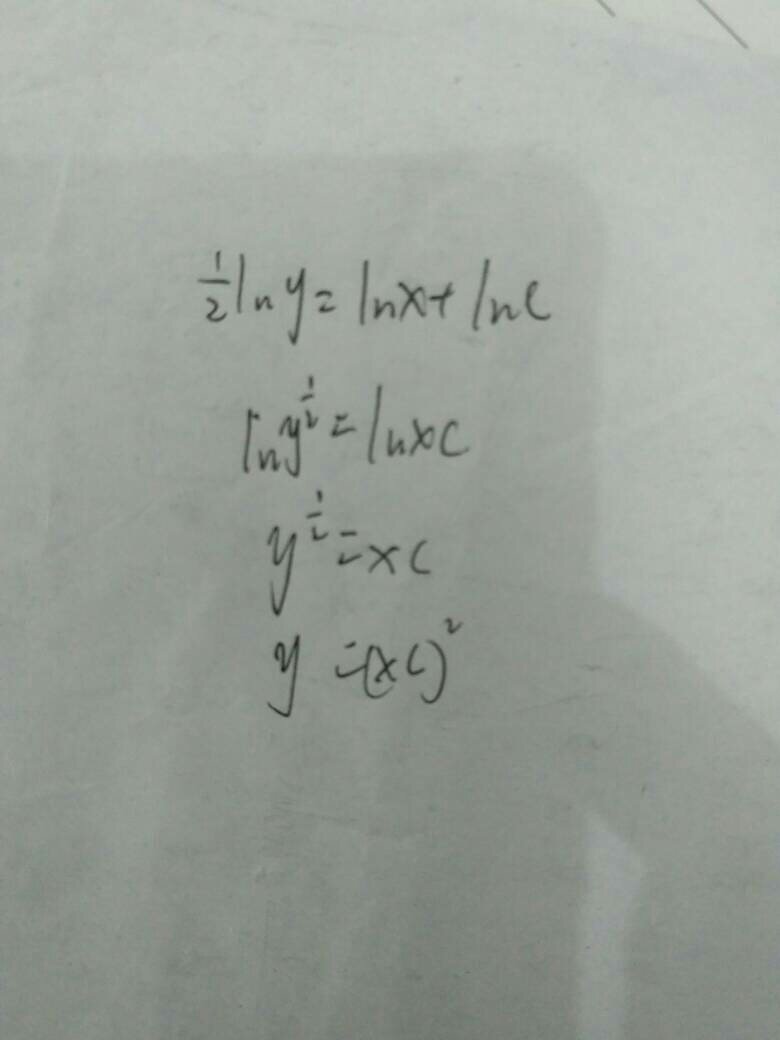 ½ln y = lnx + lnC
ln y^½ = lnxC
y^½ = xC
y = (xC)²